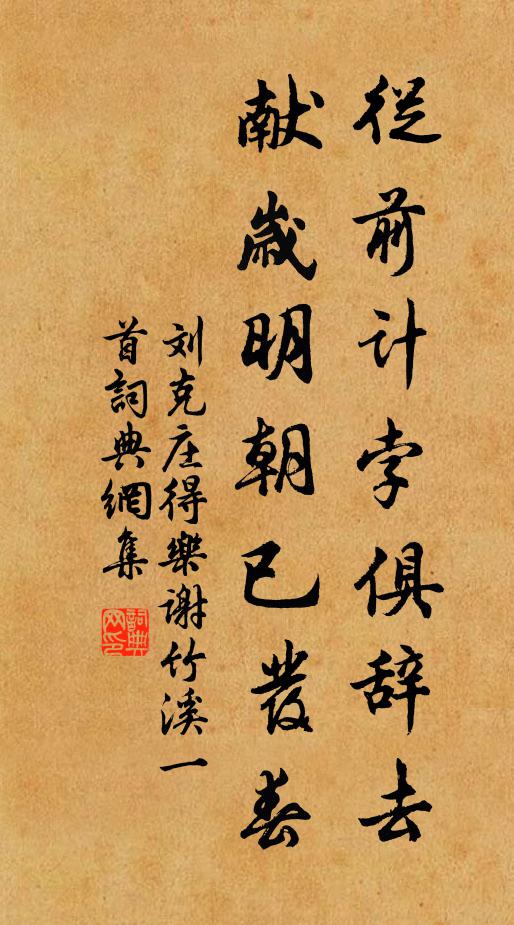 從前计孛俱辞去
献歲明朝已發春
刘克庄得樂謝竹溪一
首詞典網集
詞典
网印